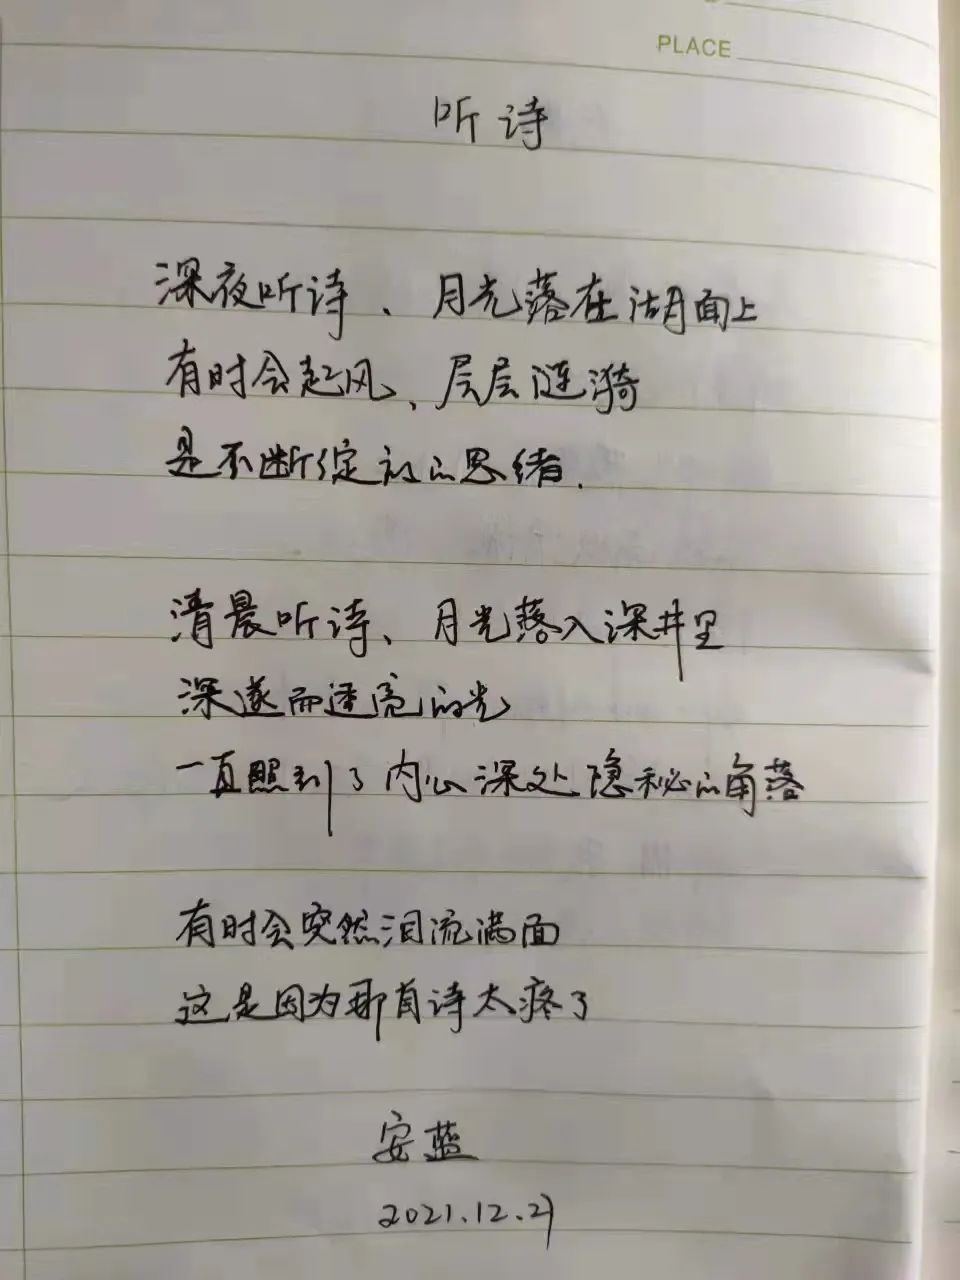 PLACE
听诗
深夜听诗、月光落在湖面上
有时会起风、层层涟漪
是不断绽放的思绪.
清晨听诗、月光落入深井里
深邃而透亮的光
一直照到了内心深处隐秘的角落
有时会突然泪流满面
这是因为那首诗太疼了
安蓝
2021.12.21